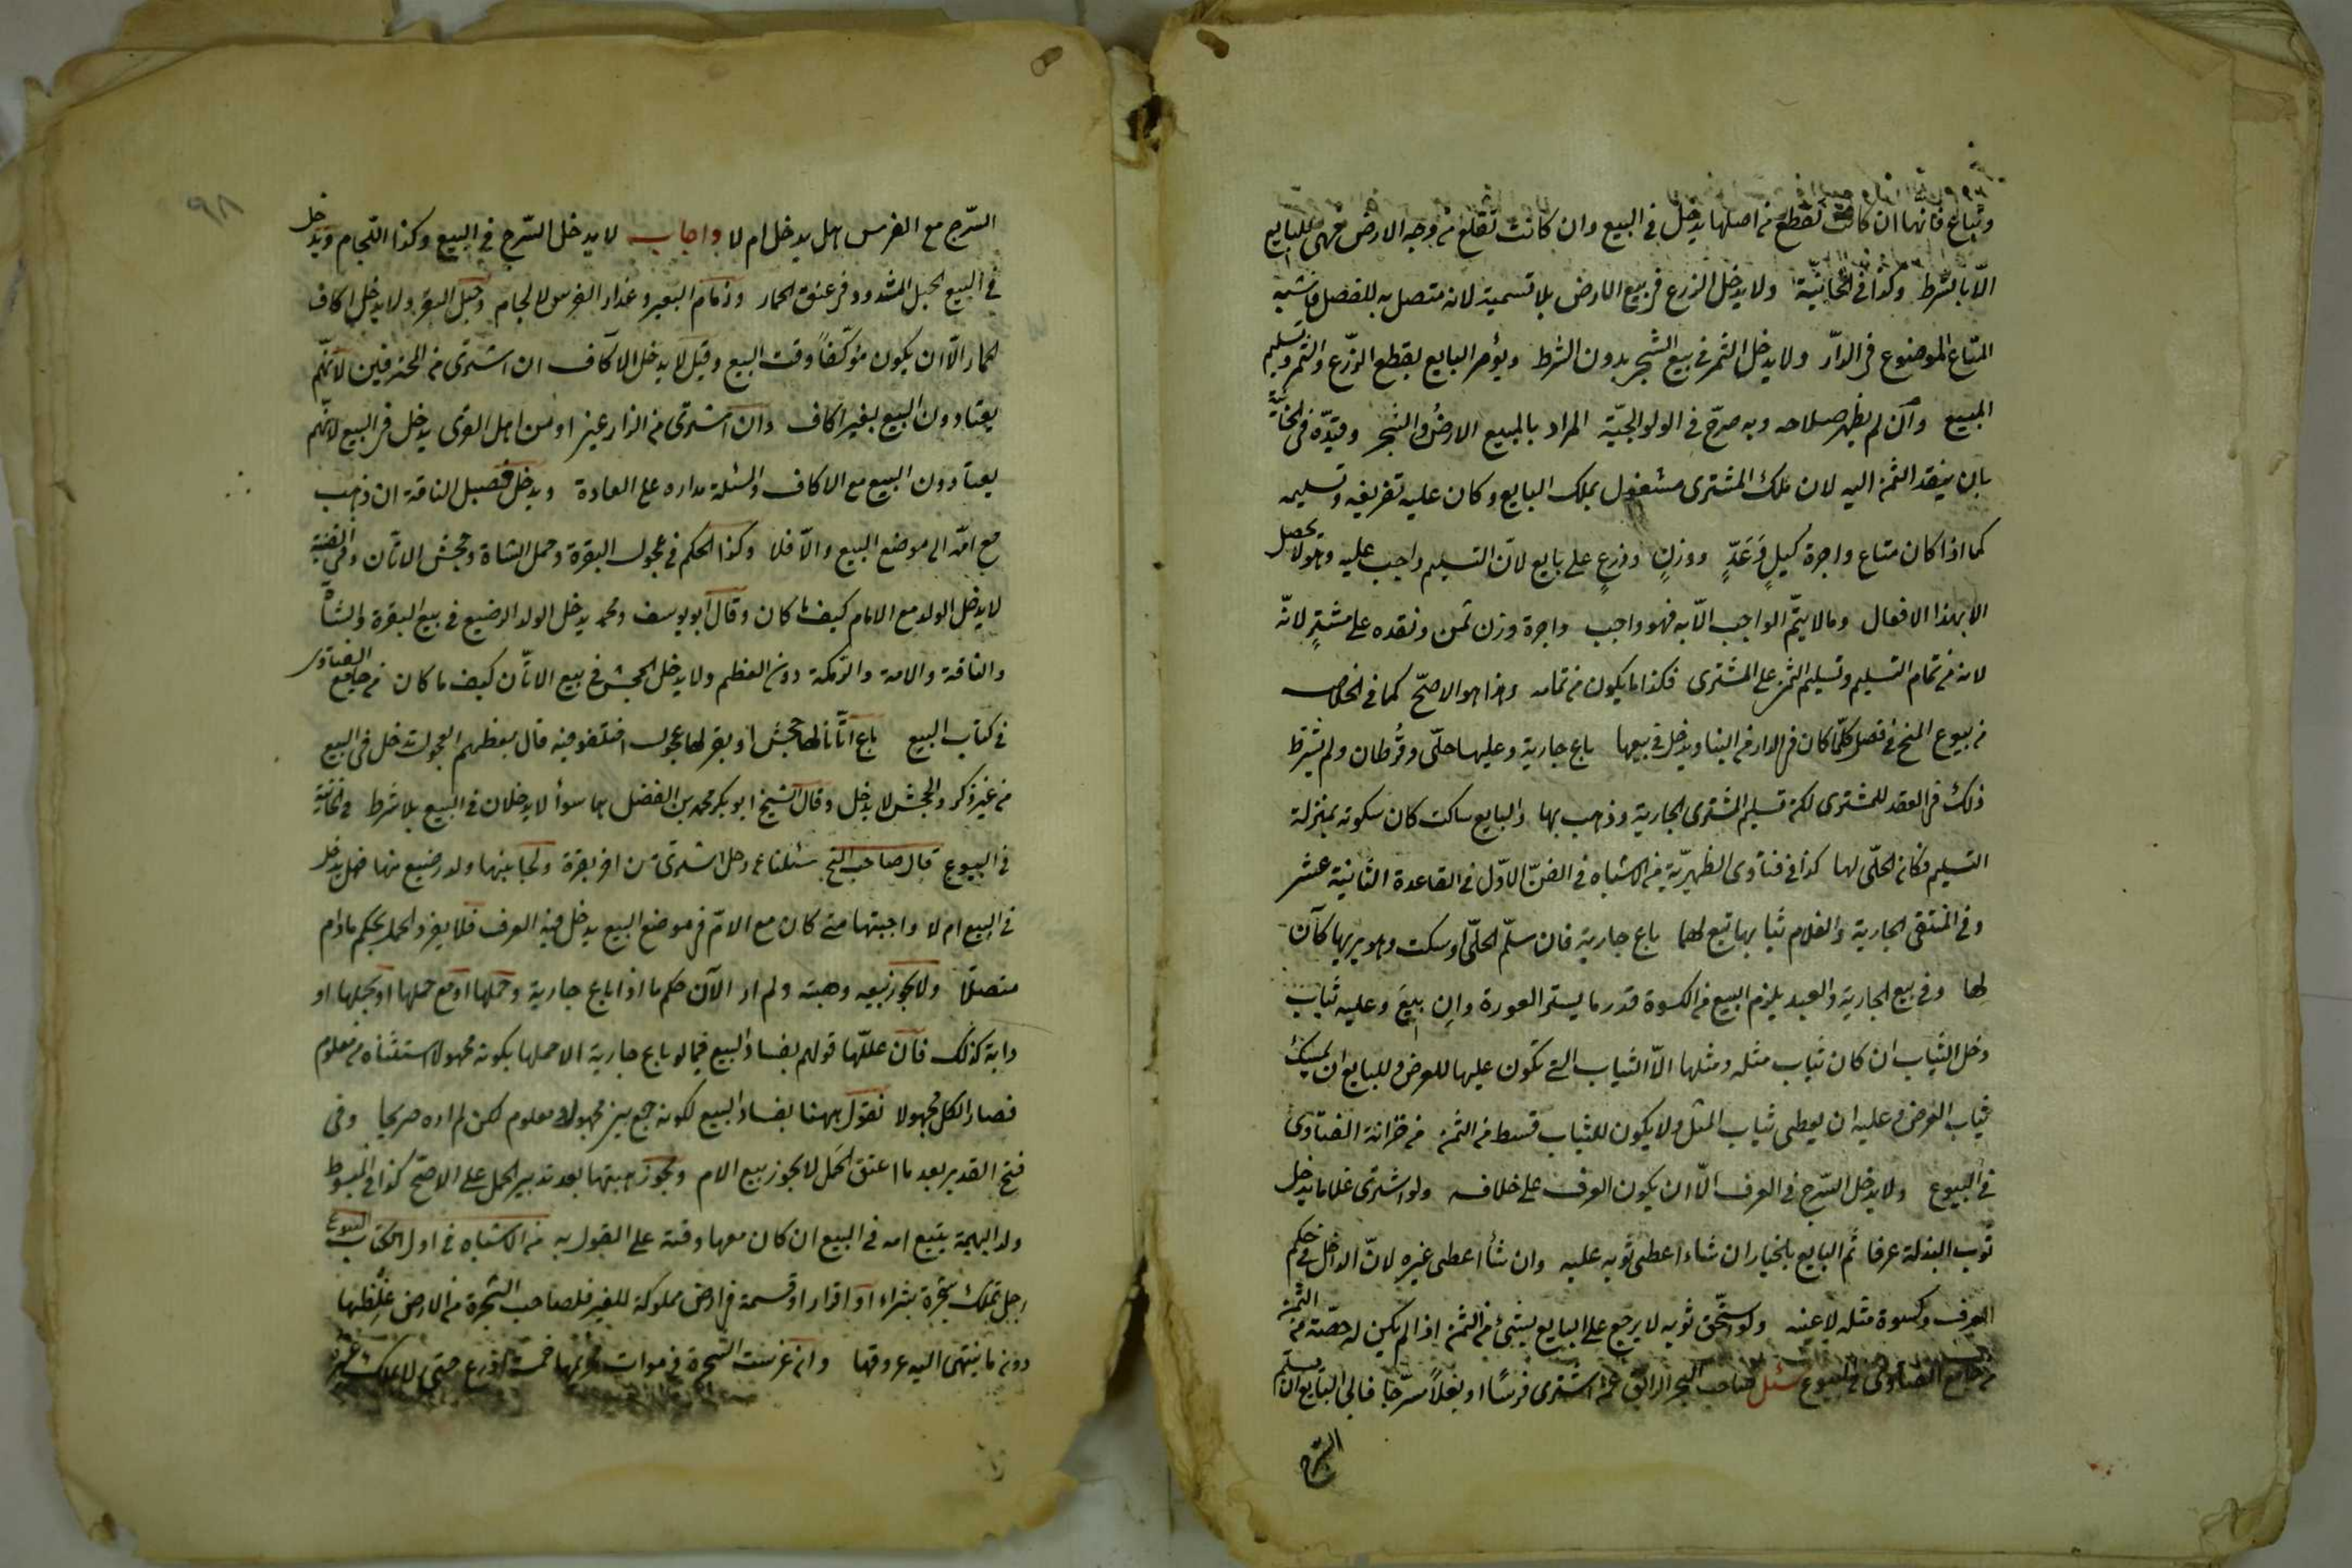 وتباع فانها ان كانت تقطع من اصلها يدخل في البيع وان كانت تقلع من وجه الارض فهى للبايع
الّا بالشرط وكذا في الخانية ولا يدخل الزرع في بيع الارض بلا تسمية لانه متصل به للفصل فاشبه
المتاع الموضوع في الدار ولا يدخل الثمر في بيع الشجر بدون الشرط ويؤمر البايع بقطع الزرع والثمر وتسليم
المبيع وان لم يظهر صلاحه وبه صرح في الولوالجيّة المراد بالمبيع الارض والشجر وقيدّه في الخانية
بان ينقد الثمن اليه لان ملك المشترى مشغول بملك البايع وكان عليه تفريغه وتسليمه
كما اذا كان متاع واجرة كيلٍ وَعَدٍّ ووزنٍ وذرعٍ على بايع لان التسليم واجب عليه وهو لا يحصل
الا بهذا الافعال وما لا يتمّ الواجب الّا به فهو واجب واجرة وزن ثمن ونقده على مشترٍ لانّه
لانه من تمام التسليم وتسليم الثمن على المشترى فكذا ما يكون من تمامه وهذا هو الاصحّ كما في الخلاصه
من بيوع المنح في فصل كلّما كان في الدار من البنا ويدخل في بيعها باع جارية وعليها حلّى وقُرطان ولم يشترط
ذلك في العقد للمشترى لكن تسليم المشترى الجارية وذهب بها والبايع ساكت كان سكوته بمنزلة
التسليم فكان الحلّى لها كذا في فتاوى الظهيريّة من الاشباه في الفنّ الاوّل في القاعدة الثانية عشر
وفي المنتقى الجارية والغلام ثيابهما تبع لهما باع جارية فان سلّم الحلّى او سكت وهو يريها كان
لها وفي بيع الجارية والعبد يلزم البيع من الكسوة قدر ما يستر العورة وان بيعَ وعليه ثياب
دخل الثياب ان كان ثياب مثله ومثلها الّا الثياب التى تكون عليها للعرض وللبايع ان يمسك
ثياب العرض وعليه ان يعطى ثياب المثل ولا يكون للثياب قسط من الثمن من خزانة الفتاوى
في البيوع ولا يدخل السّرج في العرف الّا ان يكون العرف على خلافه ولو اشترى غلاما يدخل
ثوب البذلة عرفا ثم البايع بالخيار ان شاء اعطى ثوبه عليه وان شأ اعطى غيره لانّ الداخل في حكم
العرف وكسوة مثله لا عينه ولو استحق ثوبه لا يرجع على البايع بشئ من الثمن اذا لم يكن له حصّة من الثمن
من جامع الفتاوى في البيوع سئل صاحب البحر الرائق عمن اشترى فرسًا او بغلاً مسرّجا فابى البايع ان يسلم
السّرج
٩٨
السّرج مع الفرس هل يدخل ام لا واجاب لا يدخل السّرج في البيع وكذا اللجام ويدخل
في البيع الحبل المشدود في عنق الحمار وزمام البعير وعذار الفرس لا لجام وحبل البقر ولا يدخل اكاف
لحمار الّا ان يكون مؤكفاً وقت البيع وقيل لا يدخل الاكاف ان اشترى من المحترفين لانّهم
يعتادون البيع بغير اكاف وان اشترى من الزارعين او من اهل القرى يدخل في البيع لانّهم
يعتادون البيع مع الاكاف والمسئلة مداره على العادة ويدخل فصيل الناقة ان ذهب
مع امّه الى موضع البيع والّا فلا وكذا الحكم في عجول البقرة وحمل الشاة وجحش الاتان وفي القنية
لا يدخل الولد مع الامام كيف ما كان وقال ابو يوسف ومحمد يدخل الولد الرضيع في بيع البقرة والشاة
والناقة والامة والرمكة دون العظم ولا يدخل الجحش في بيع الاتّان كيف ما كان من جامع الفتاوى
في كتاب البيع باع اتانا لها جحش او بقر لها عجول اختلفو فيه قال بعظهم العجول تدخل في البيع
من غير ذكر والجحش لا يدخل وقال الشيخ ابو بكر محمد بن الفضل هما سوأ لا يدخلان في البيع بلا شرط في خانية
في البيوع قال صاحب المنح سئلنا عن رجل اشترى من اخر بقرة ولجانبها ولد رضيع منها هل يدخل
في البيع ام لا واجبتها متى كان مع الامّ في موضع البيع يدخل فيه العرف فلا يفرد الحمل بحكم مادام
متصلاً ولا يجوز بيعه وهبته ولم ار الآن حكم ما اذا باع جارية وحملها او مع حملها او بحملها او
دابة كذلك فان عللّها قولهم بفساد البيع فيما لو باع جارية الا حملها بكونه مجهولا استثناه من معلوم
فصار الكل مجهولا نقول ههنا بفساد البيع لكونه جمع بين مجهول ومعلوم لكن لم اره صريحا وفى
فتح القدير بعد ما اعتق الحمل لا يجوز بيع الام ويجوز هبتها بعد تدبير الحمل على الاصحّ كذا في المبسوط
ولد البهيمة يتبع امه في البيع ان كان معها وقته على القول به من الاشباه في اول كتاب البيوع
رجل تملك شجرة بشراء او اقرار او قسمة في ارض مملوكة للغير فلصاحب الشجرة من الارض غلظها
دون ما ينتهى اليه عروقها وان غرست الشجرة في موات حريمها خمسة اذرع حتى لا يملك غيره